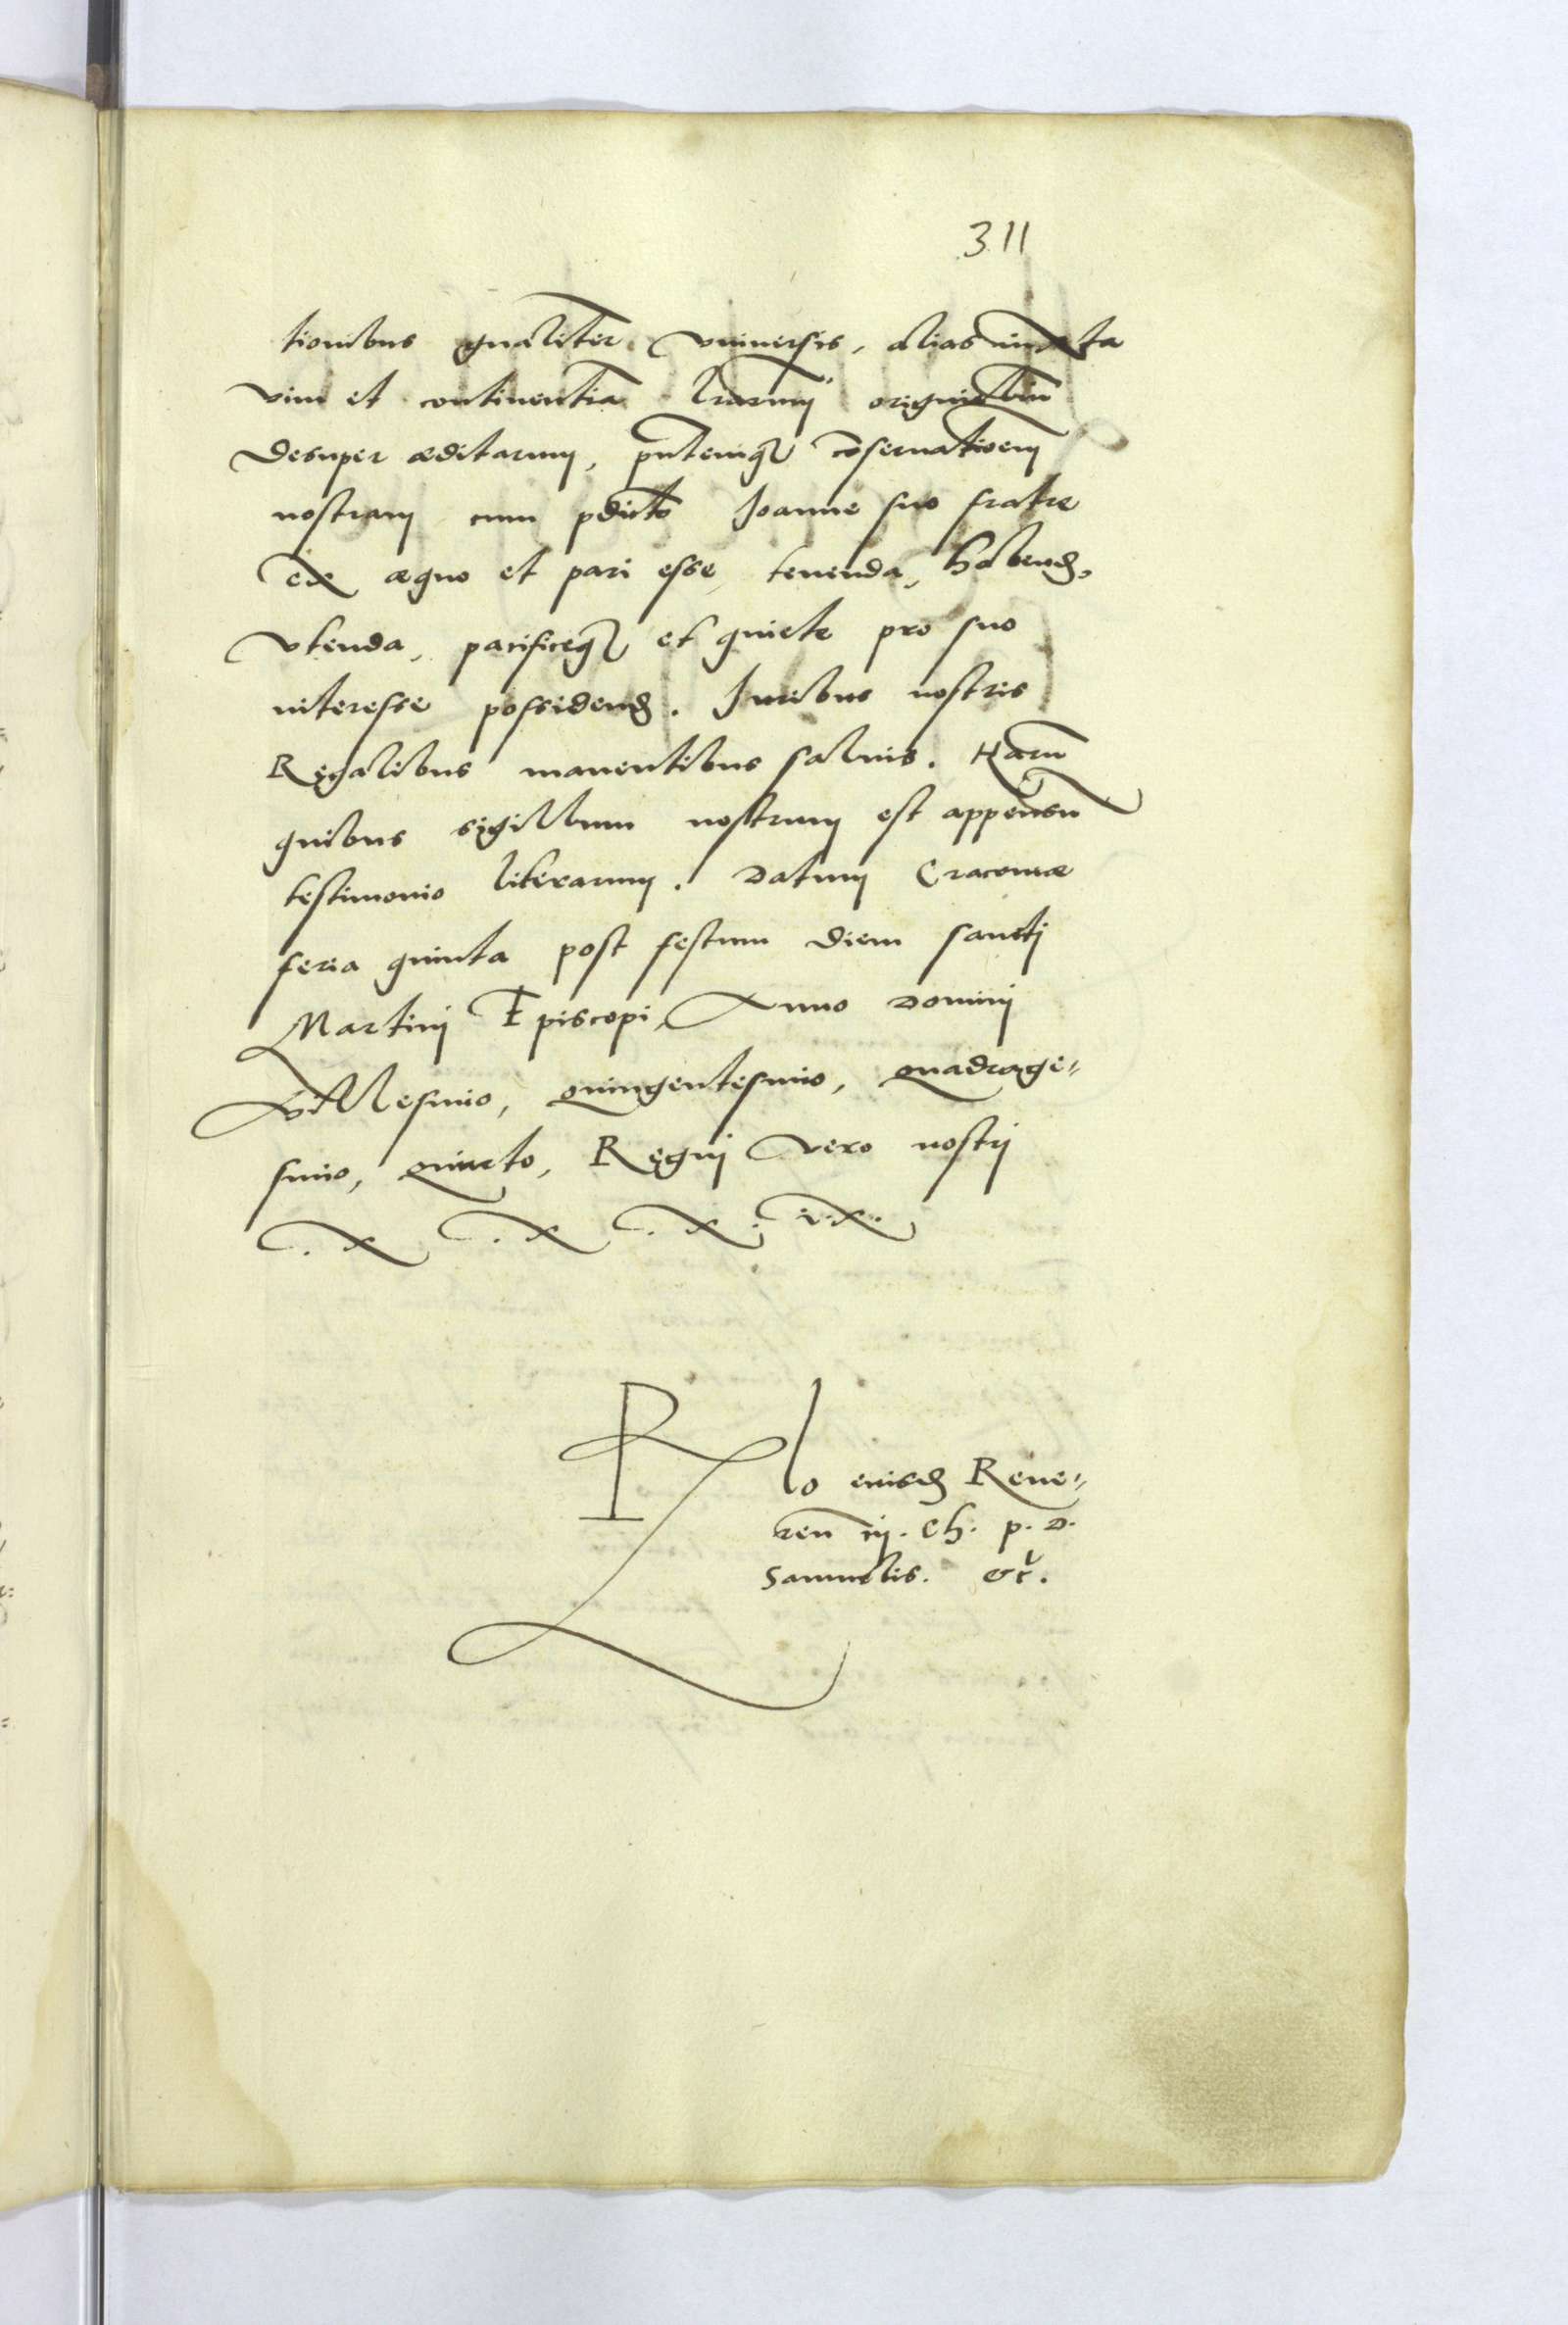 311
tionibus gnaliter vniuersis, alias iuxta
vim et continentia lrarum originaliu
desuper æditarum, pntemq3 coseruationem
nostram cum pdicto Joanne suo fratre
ex æquo et pari esse, tenenda, habend,
vtenda, pacificeq3 et quiete pro suo
interesse possidend. Juribus nostris
Regalibus manentibus saluis. Haru
quibus sigillum nostrum est appensu
testimonio literarum. Datum Cracouiæ
feria quinta post festum diem sancti
Martini Episcopi, Anno Domini
Millesimo, quingentesimo, quadrage„
simo, quinto, Regni vero nostri
.X .X .X. IX.
R lo eiusd Reue„
ren in. Ch. p. D.
Samuelis. etc.